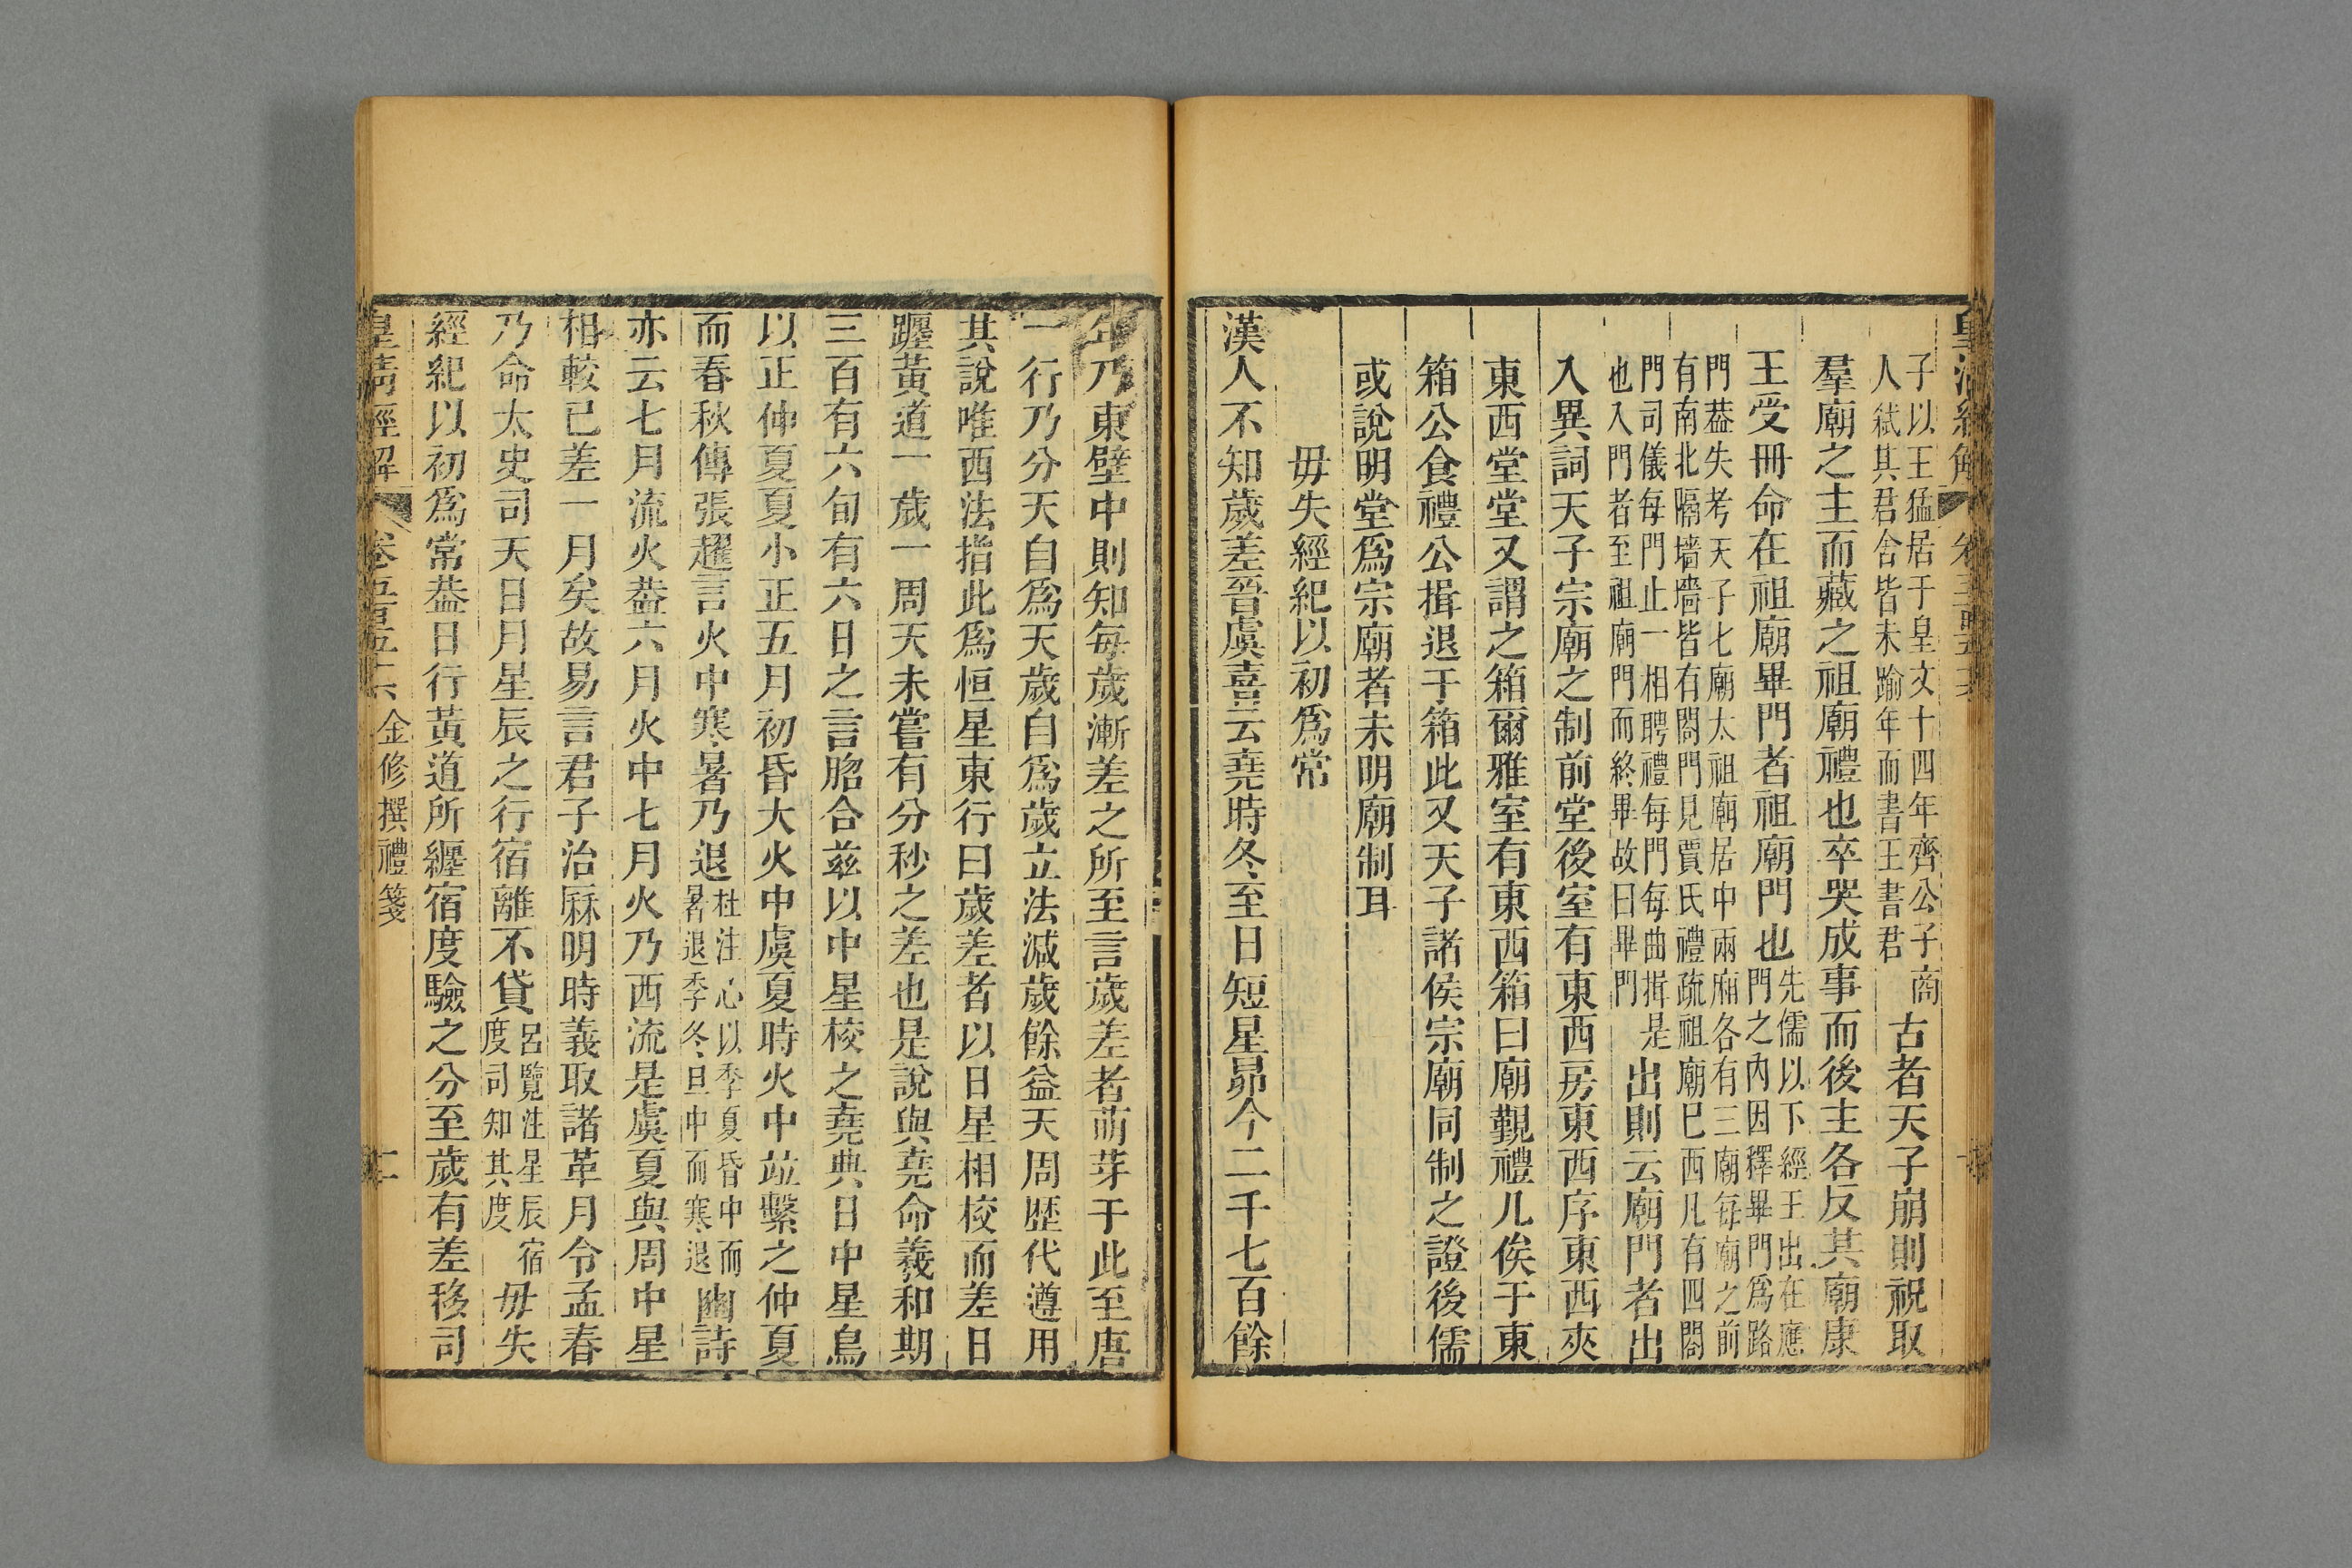 子以王猛居于皇文十四年齊公子商
人弒其君舍皆未踰年而書王書君
古者天子崩則祝取
羣廟之主而藏之祖廟禮也卒哭成事而後主各反其廟康
王受冊命在祖廟畢門者祖廟門也
先儒以下經王出在應
門之內因釋畢門爲路
門葢失考天子七廟太祖廟居中兩廂各有三廟每廟之前
有南北隔墻墻皆有閤門見賈氏禮疏祖廟巳西凡有四閤
門司儀每門止一相聘禮每門每曲揖是
也入門者至祖廟門而終畢故曰畢門
出則云廟門者出
入異詞天子宗廟之制前堂後室有東西房東西序東西夾
東西堂堂又謂之箱爾雅室有東西箱曰廟覲禮几俟于東
箱公食禮公揖退于箱此又天子諸侯宗廟同制之證後儒
或說明堂爲宗廟者未明廟制耳
毋失經紀以初爲常
漢人不知歲差晉虞喜云堯時冬至日短星昴今二千七百餘
年乃東壁中則知每歲漸差之所至言歲差者萌芽于此至唐
一行乃分天自爲天歲自爲歲立法減歲餘益天周歷代遵用
其說唯西法指此爲恒星東行曰歲差者以日星相校而差日
躔黃道一歲一周天未嘗有分秒之差也是說與堯命羲和期
三百有六旬有六日之言脗合茲以中星校之堯典日中星鳥
以正仲夏夏小正五月初昏大火中虞夏時火中竝繫之仲夏
而春秋傳張趯言火中寒暑乃退
杜注心以季夏昏中而
暑退季冬旦中而寒退
豳詩
亦云七月流火葢六月火中七月火乃西流是虞夏與周中星
相較已差一月矣故易言君子治厤明時義取諸革月令孟春
乃命太史司天日月星辰之行宿離不貸
呂覽注星辰宿
度司知其度
毋失
經紀以初爲常葢日行黃道所纒宿度驗之分至歲有差移司
皇淸經解
卷五百五十六
金修撰禮箋
二